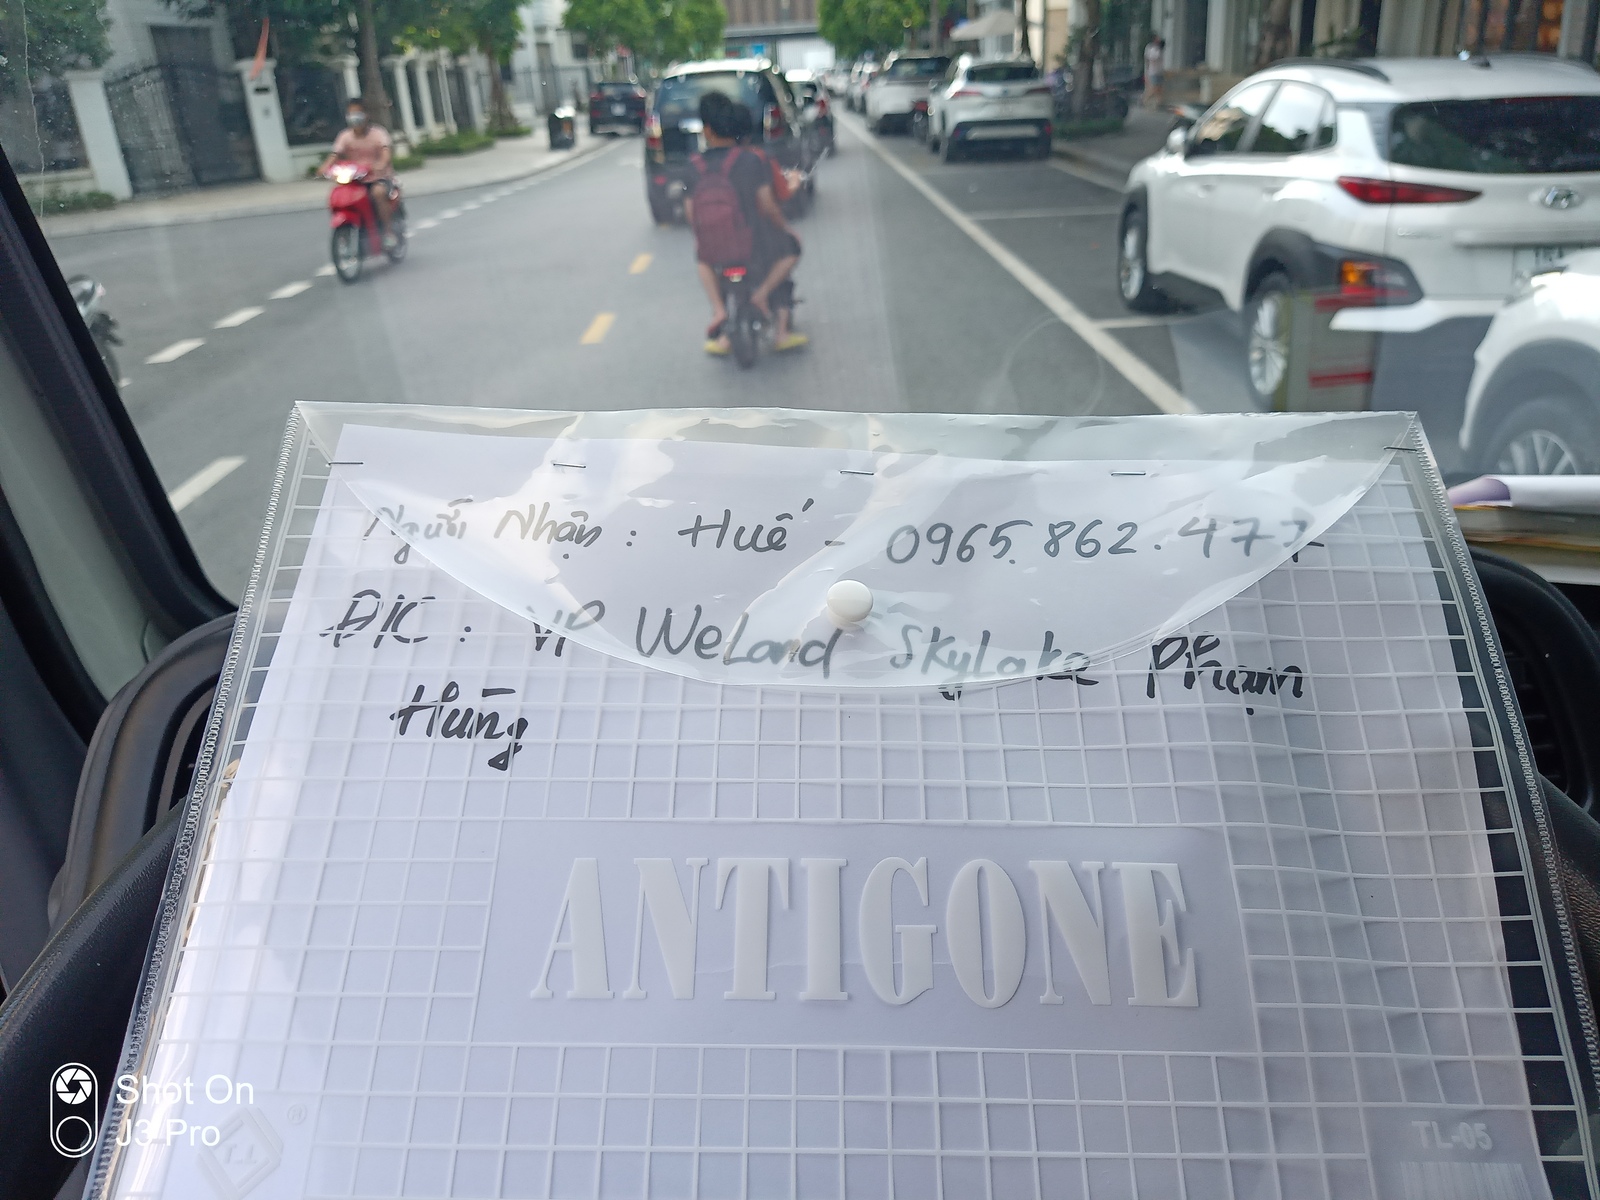 Người Nhận : Huế - 0965.862.477
Đ/C : VP WeLand Skylake Phạm
Hùng
ANTIGONE
TL-05
Shot On
J3 Pro